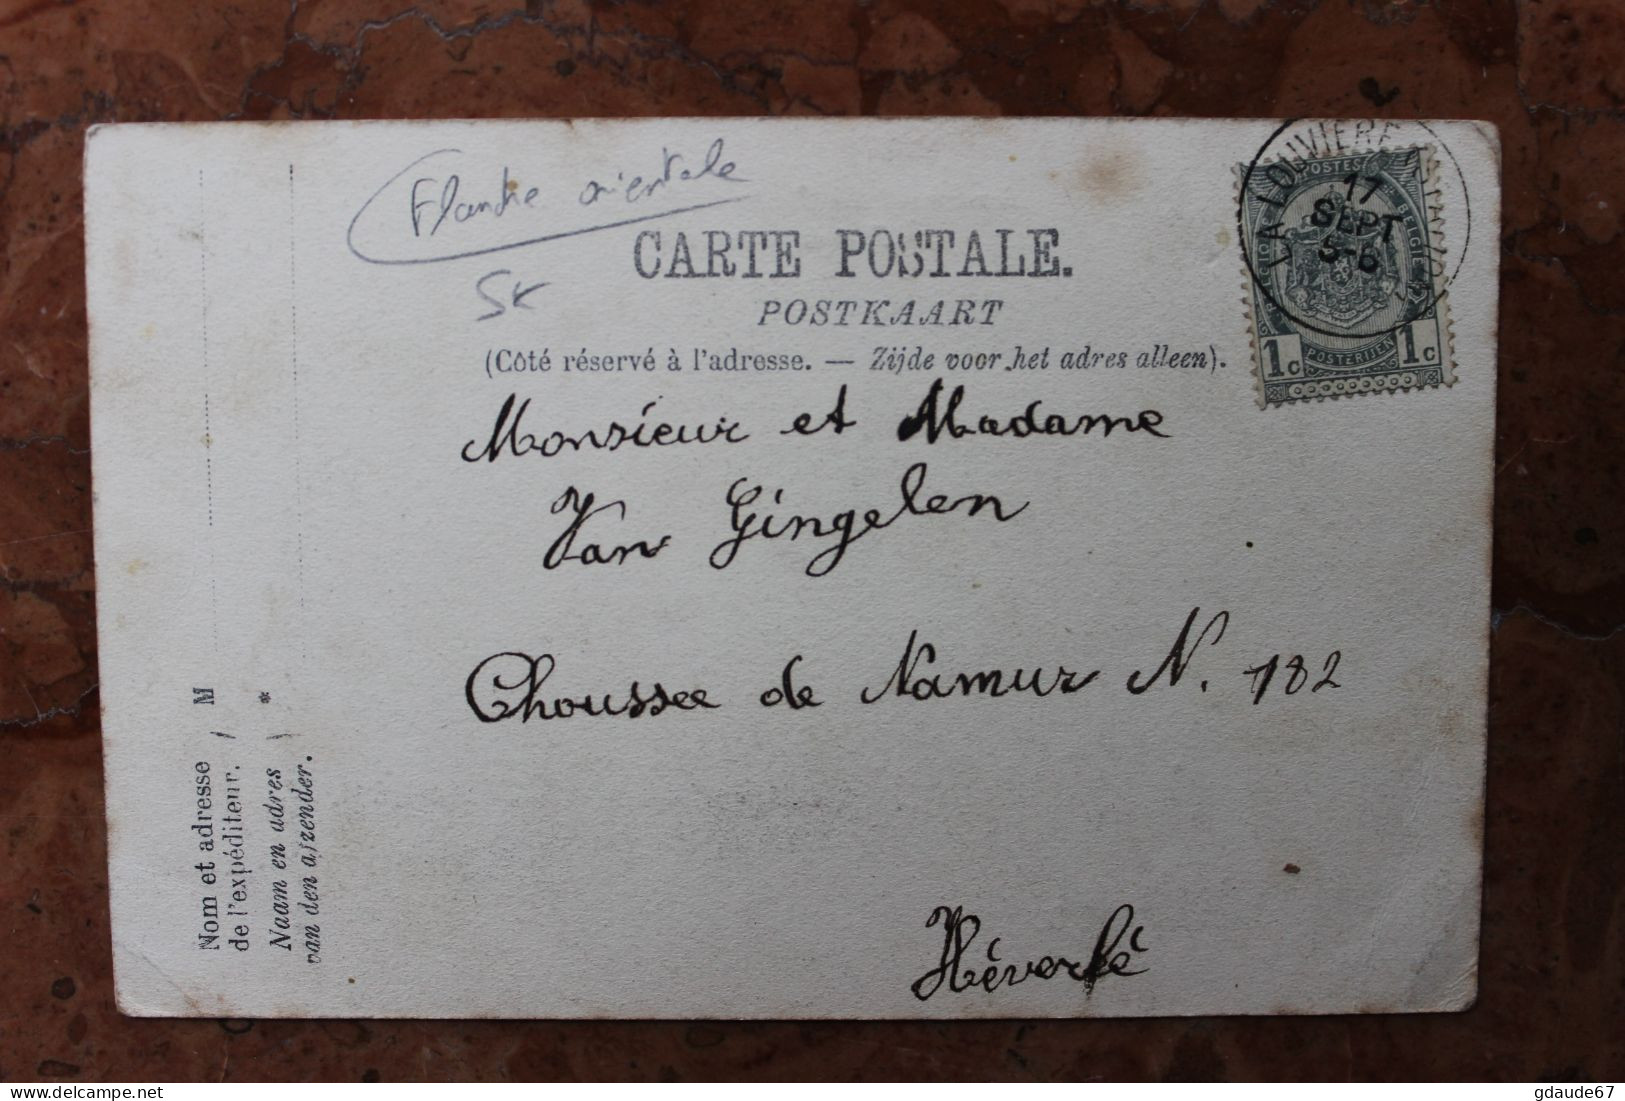 Flandre orientale
CARTE POSTALE.
POSTKAART
(Côté réservé à l'adresse. — Zijde voor het adres alleen).
LA LOUVIERE (STATION)
17
SEPT
5-6
POSTES
BELGIQUE BELGIE
1c POSTERIJEN 1c
Monsieur et Madame
Van Gingelen
Choussee de Namur N. 182
Héverlé
M
Nom et adresse
de l'expéditeur.
*
Naam en adres
van den afzender.
gdaude67